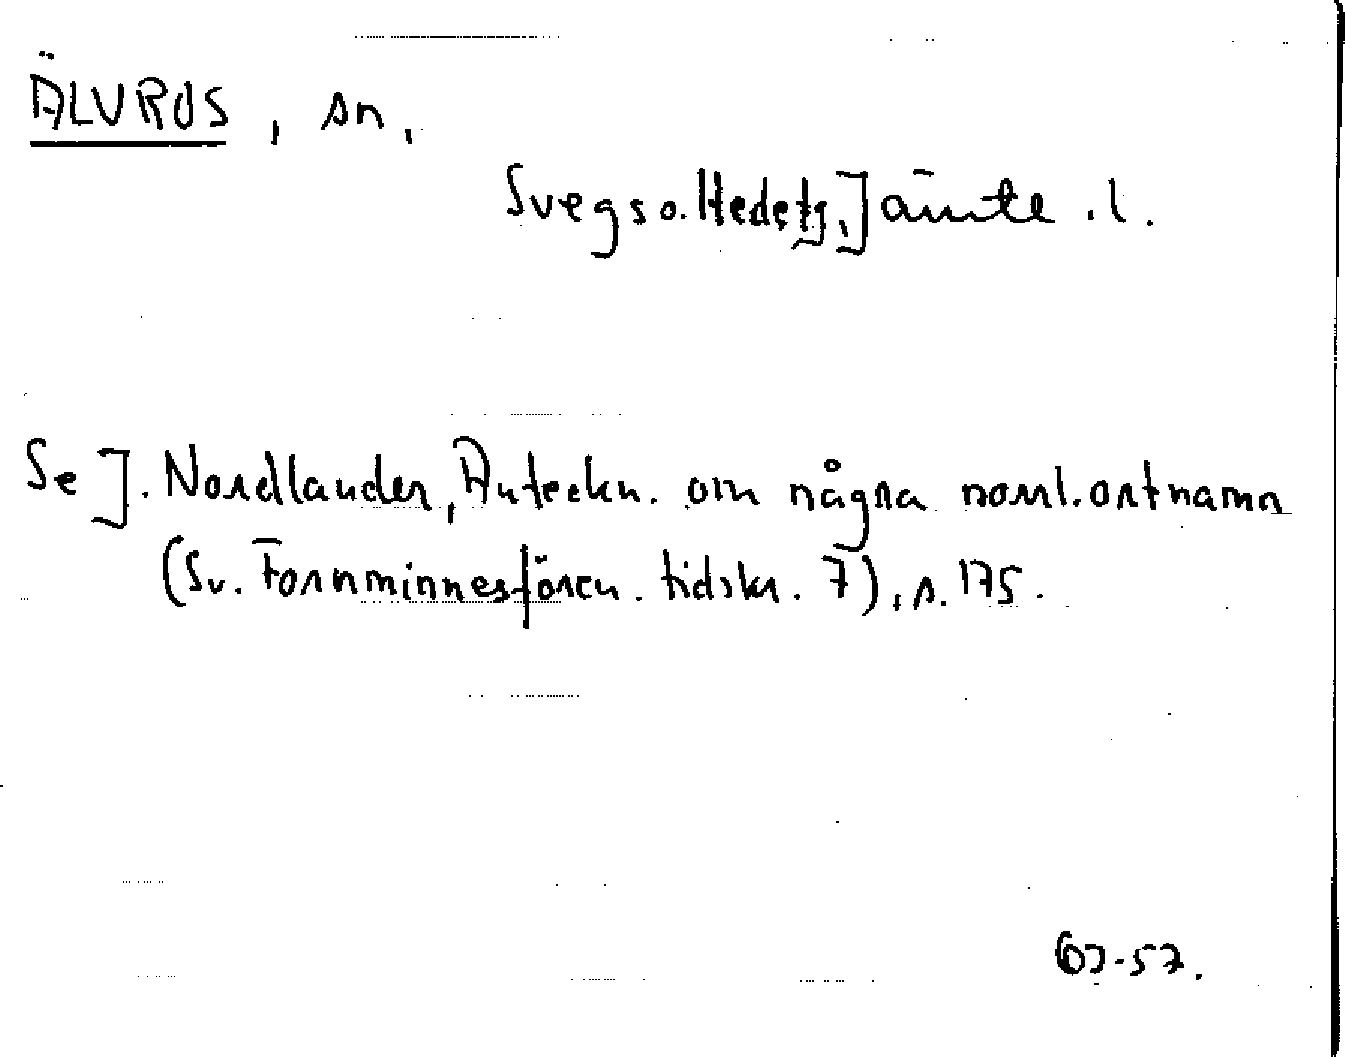 ÄLVROS, sn,
Svegs o. Hedetg., Jämte.l.
Se J. Nordlander, Anteckn. om några norrl. ortnamn
(Sv. Fornminnesfören. tidskr. 7), s. 175.